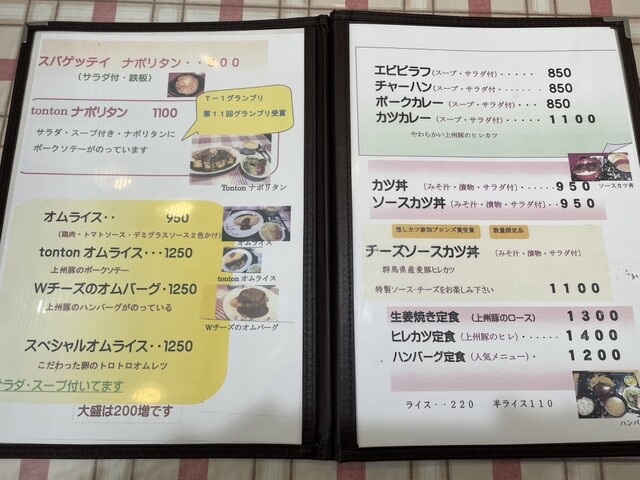 スパゲッティ ナポリタン・・800
(サラダ付・鉄板)
T－1グランプリ
第11回グランプリ受賞
tonton ナポリタン 1100
サラダ・スープ付き・ナポリタンに
ポークソテーがのっています
Tonton ナポリタン
オムライス・・ 950
(鶏肉・トマトソース・デミグラスソース2色かけ)
オムライス
tonton オムライス・・・1250
上州豚のポークソテー
tonton オムライス
Wチーズのオムバーグ・1250
上州豚のハンバーグがのっている
Wチーズのオムバーグ
スペシャルオムライス・・1250
こだわった卵のトロトロオムレツ
サラダ・スープ付いてます
大盛は200増です
エビピラフ(スープ・サラダ付)・・・・・ 850
チャーハン(スープ・サラダ付)・・・・・・ 850
ポークカレー(スープ・サラダ付)・・・850
カツカレー(スープ・サラダ付)・・・・1100
やわらかい上州豚のヒレカツ
ソースカツ丼
カツ丼 [みそ汁・漬物・サラダ付]・・・・・950
ソースカツ丼 [みそ汁・漬物・サラダ付]・・950
推しカツ参加ブロンズ賞受賞 数量限定品
チーズソースカツ丼 [みそ汁・漬物・サラダ付]
群馬県産麦豚ヒレカツ
特製ソース・チーズをお楽しみ下さい 1100
生姜焼き定食 (上州豚のロース) 1300
ヒレカツ定食 (上州豚のヒレ)・・・・・1400
ハンバーグ定食 (人気メニュー)・ 1200
ライス・・220 半ライス110
ハンバ